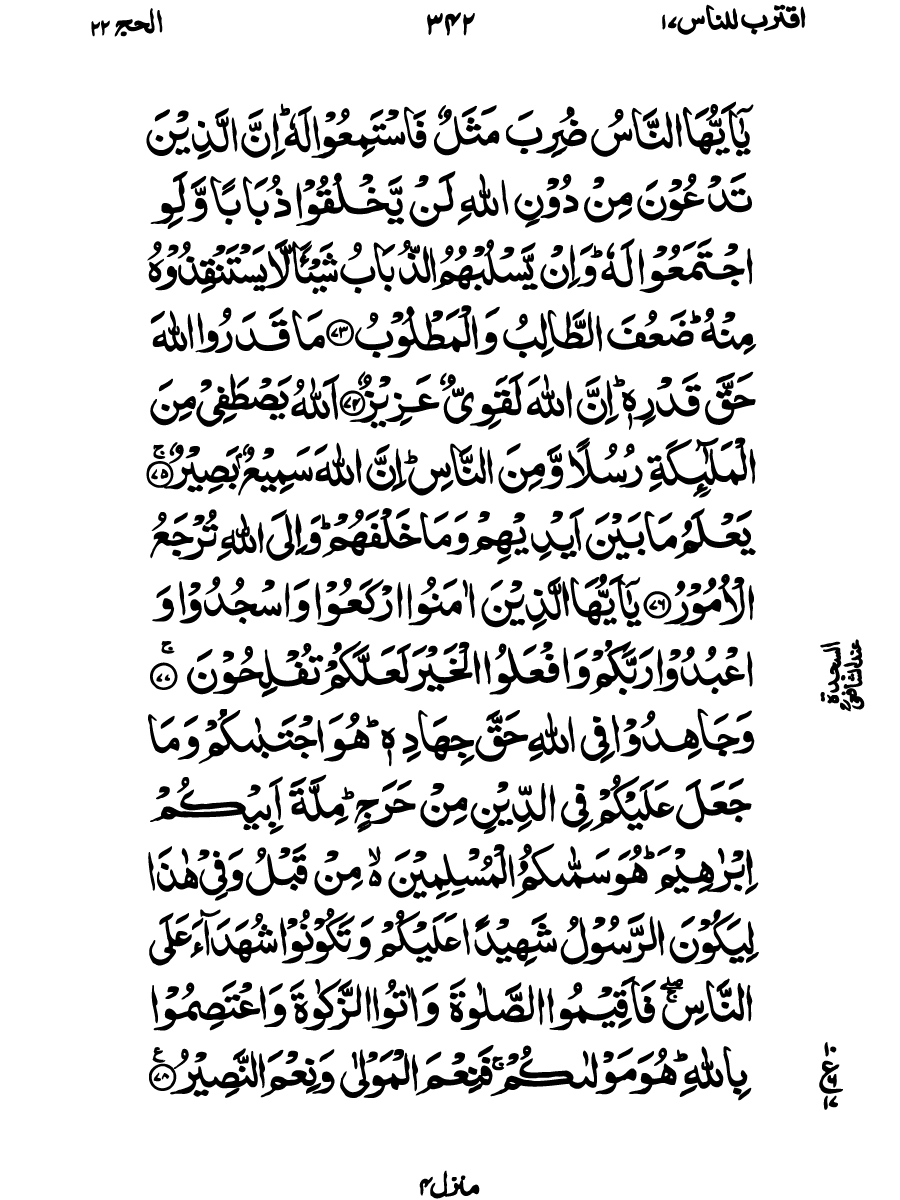 اقترب للناس ۱۷
۳۴۲
الحج ۲۲
يٰۤاَيُّهَا النَّاسُ ضُرِبَ مَثَلٌ فَاسْتَمِعُوْا لَهٗ ؕ اِنَّ الَّذِيْنَ
تَدْعُوْنَ مِنْ دُوْنِ اللّٰهِ لَنْ يَّخْلُقُوْا ذُبَابًا وَّلَوِ
اجْتَمَعُوْا لَهٗ ؕ وَاِنْ يَّسْلُبْهُمُ الذُّبَابُ شَيْـًٔا لَّا يَسْتَنْقِذُوْهُ
مِنْهُ ؕ ضَعُفَ الطَّالِبُ وَالْمَطْلُوْبُ ﴿۷۳﴾ مَا قَدَرُوا اللّٰهَ
حَقَّ قَدْرِهٖ ؕ اِنَّ اللّٰهَ لَقَوِىٌّ عَزِيْزٌ ﴿۷۴﴾ اَللّٰهُ يَصْطَفِىْ مِنَ
الْمَلٰٓئِكَةِ رُسُلًا وَّمِنَ النَّاسِ ؕ اِنَّ اللّٰهَ سَمِيْعٌۢ بَصِيْرٌ ۚ ﴿۷۵﴾
يَعْلَمُ مَا بَيْنَ اَيْدِيْهِمْ وَمَا خَلْفَهُمْ ؕ وَاِلَى اللّٰهِ تُرْجَعُ
الْاُمُوْرُ ﴿۷۶﴾ يٰۤاَيُّهَا الَّذِيْنَ اٰمَنُوا ارْكَعُوْا وَاسْجُدُوْا وَ
اعْبُدُوْا رَبَّكُمْ وَافْعَلُوا الْخَيْرَ لَعَلَّكُمْ تُفْلِحُوْنَ ۚ ﴿۷۷﴾
السجدة
عند الشافعی
وَجَاهِدُوْا فِى اللّٰهِ حَقَّ جِهَادِهٖ ؕ هُوَ اجْتَبٰٮكُمْ وَمَا
جَعَلَ عَلَيْكُمْ فِى الدِّيْنِ مِنْ حَرَجٍ ؕ مِلَّةَ اَبِيْكُمْ
اِبْرٰهِيْمَ ؕ هُوَ سَمّٰٮكُمُ الْمُسْلِمِيْنَ ۙ مِنْ قَبْلُ وَفِىْ هٰذَا
لِيَكُوْنَ الرَّسُوْلُ شَهِيْدًا عَلَيْكُمْ وَتَكُوْنُوْا شُهَدَآءَ عَلَى
النَّاسِ ۖۚ فَاَقِيْمُوا الصَّلٰوةَ وَاٰتُوا الزَّكٰوةَ وَاعْتَصِمُوْا
بِاللّٰهِ ؕ هُوَ مَوْلٰٮكُمْ ۚ فَنِعْمَ الْمَوْلٰى وَنِعْمَ النَّصِيْرُ ﴿۷۸﴾
۱۰
ع ۶
۱۷
منزل ۴